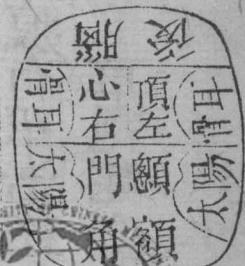 腦後
頂心
左右
顖門
額角
耳
太陽
耳
太陽